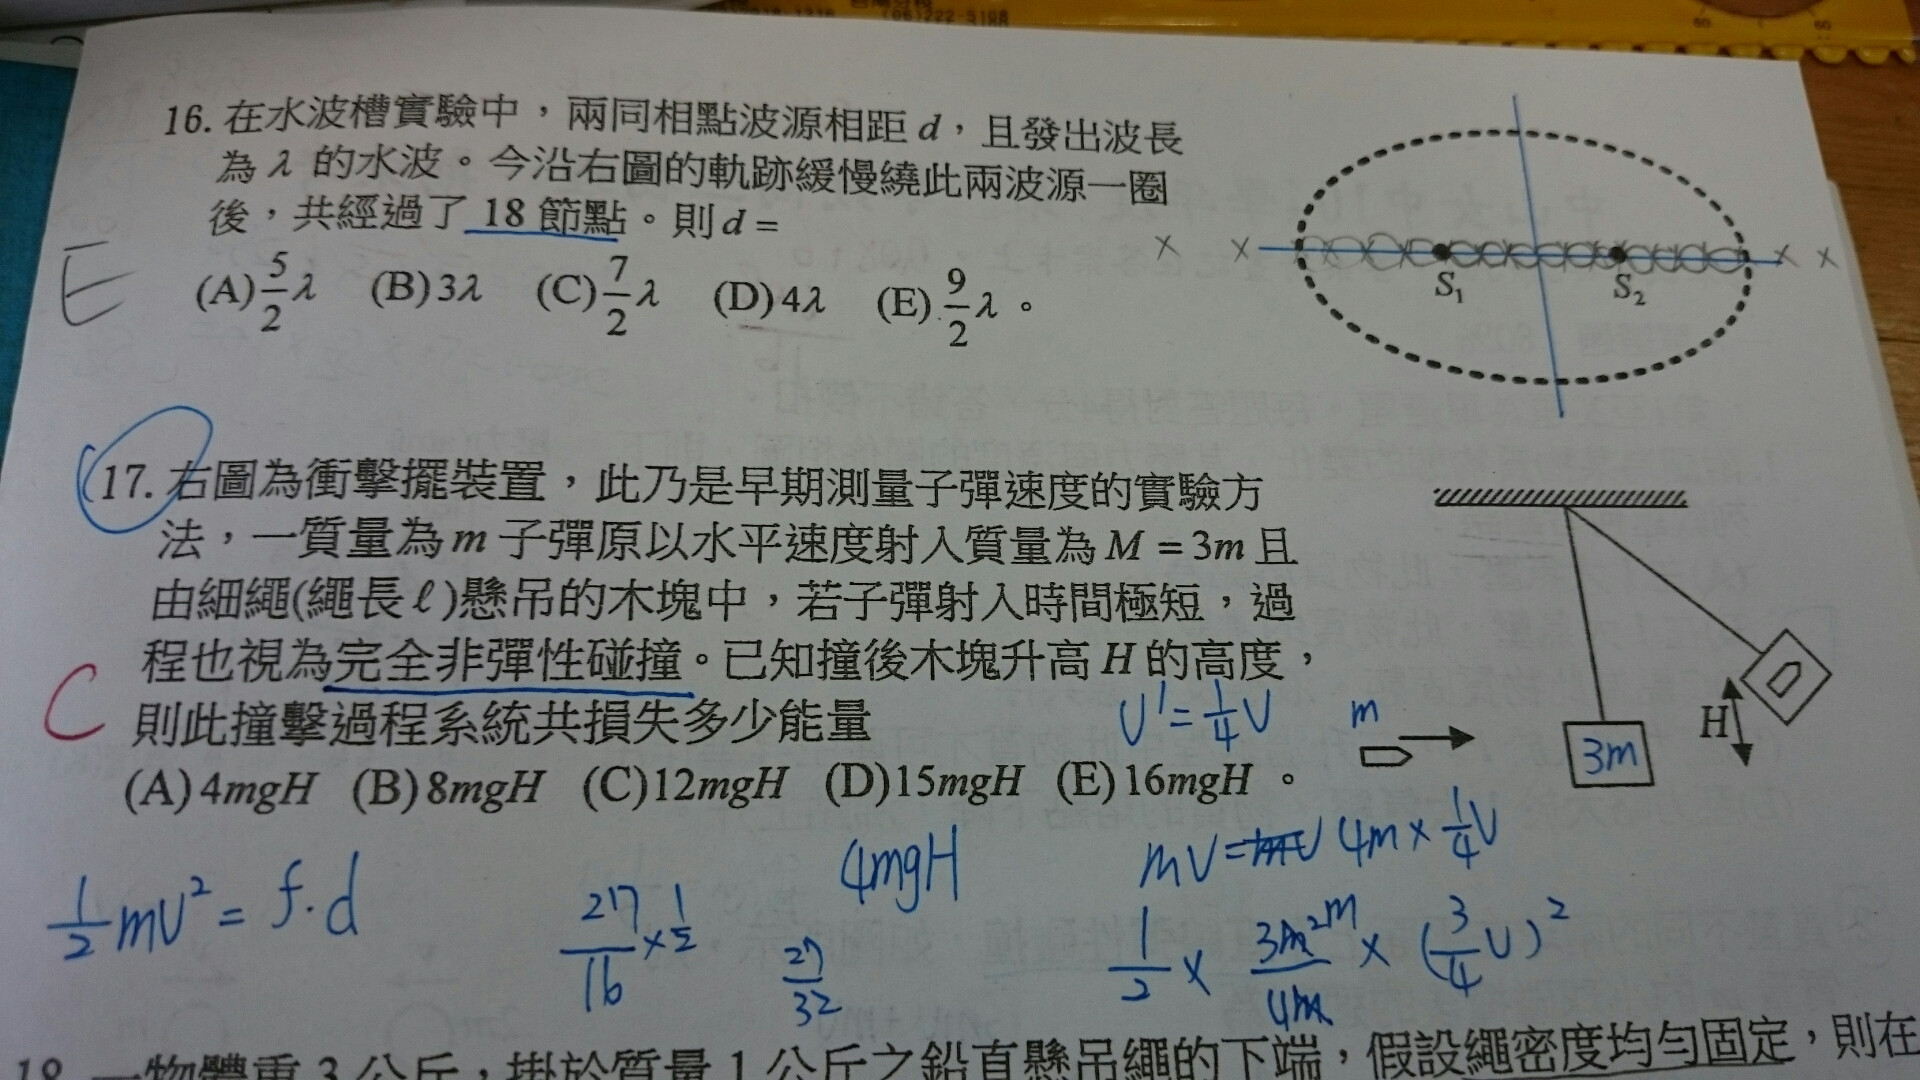 (06)222-5108
16. 在水波槽實驗中，兩同相點波源相距 d，且發出波長
為 λ 的水波。今沿右圖的軌跡緩慢繞此兩波源一圈
後，共經過了 18 節點。則 d =
(A) 5/2 λ (B) 3λ (C) 7/2 λ (D) 4λ (E) 9/2 λ 。
E
S₁ S₂
17. 右圖為衝擊擺裝置，此乃是早期測量子彈速度的實驗方
法，一質量為 m 子彈原以水平速度射入質量為 M = 3m 且
由細繩(繩長 ℓ)懸吊的木塊中，若子彈射入時間極短，過
程也視為完全非彈性碰撞。已知撞後木塊升高 H 的高度，
則此撞擊過程系統共損失多少能量
(A) 4mgH (B) 8mgH (C) 12mgH (D) 15mgH (E) 16mgH 。
C
U' = 1/4 U
m
3m
H
4mgH
mU = 4m × 1/4 U
1/2 mU² = f·d
27/16 × 1/2
27/32
1/2 × 3m²m/4m × (3/4 U)²
18. 一物體重 3 公斤，掛於質量 1 公斤之鉛直懸吊繩的下端，假設繩密度均勻固定，則在